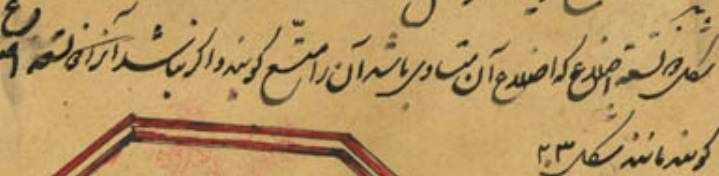 شکل ذو تسعه اضلاع که اضلاع آن متساوی باشد آن را متسع کویند و اکر نباشد آنرا ذو تسعه
کویند مانند شکل ۲۳